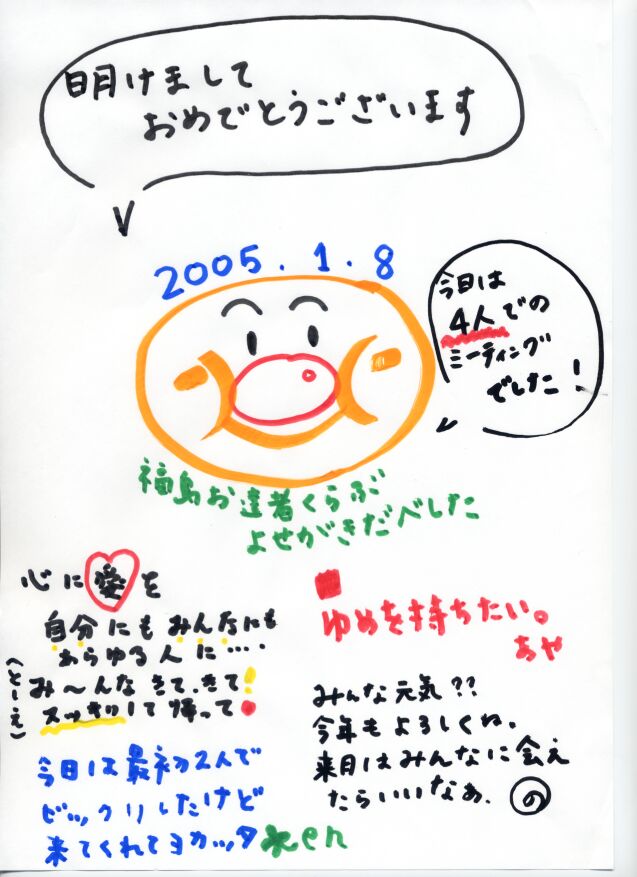 明けまして
おめでとうございます
2005.1.8
今日は
4人での
ミーティング
でした!
福島お達者くらぶ
よせがきだべした
心に愛を
自分にもみんなにも
あらゆる人に....
み〜んなきて、きて!
スッキリして帰って!
(とーえ)
今日は最初2人で
ビックリしたけど
来てくれてヨカッタ
ken
ゆめを持ちたい。
あや
みんな元気??
今年もよろしくね。
来月はみんなに会え
たらいいなあ。の